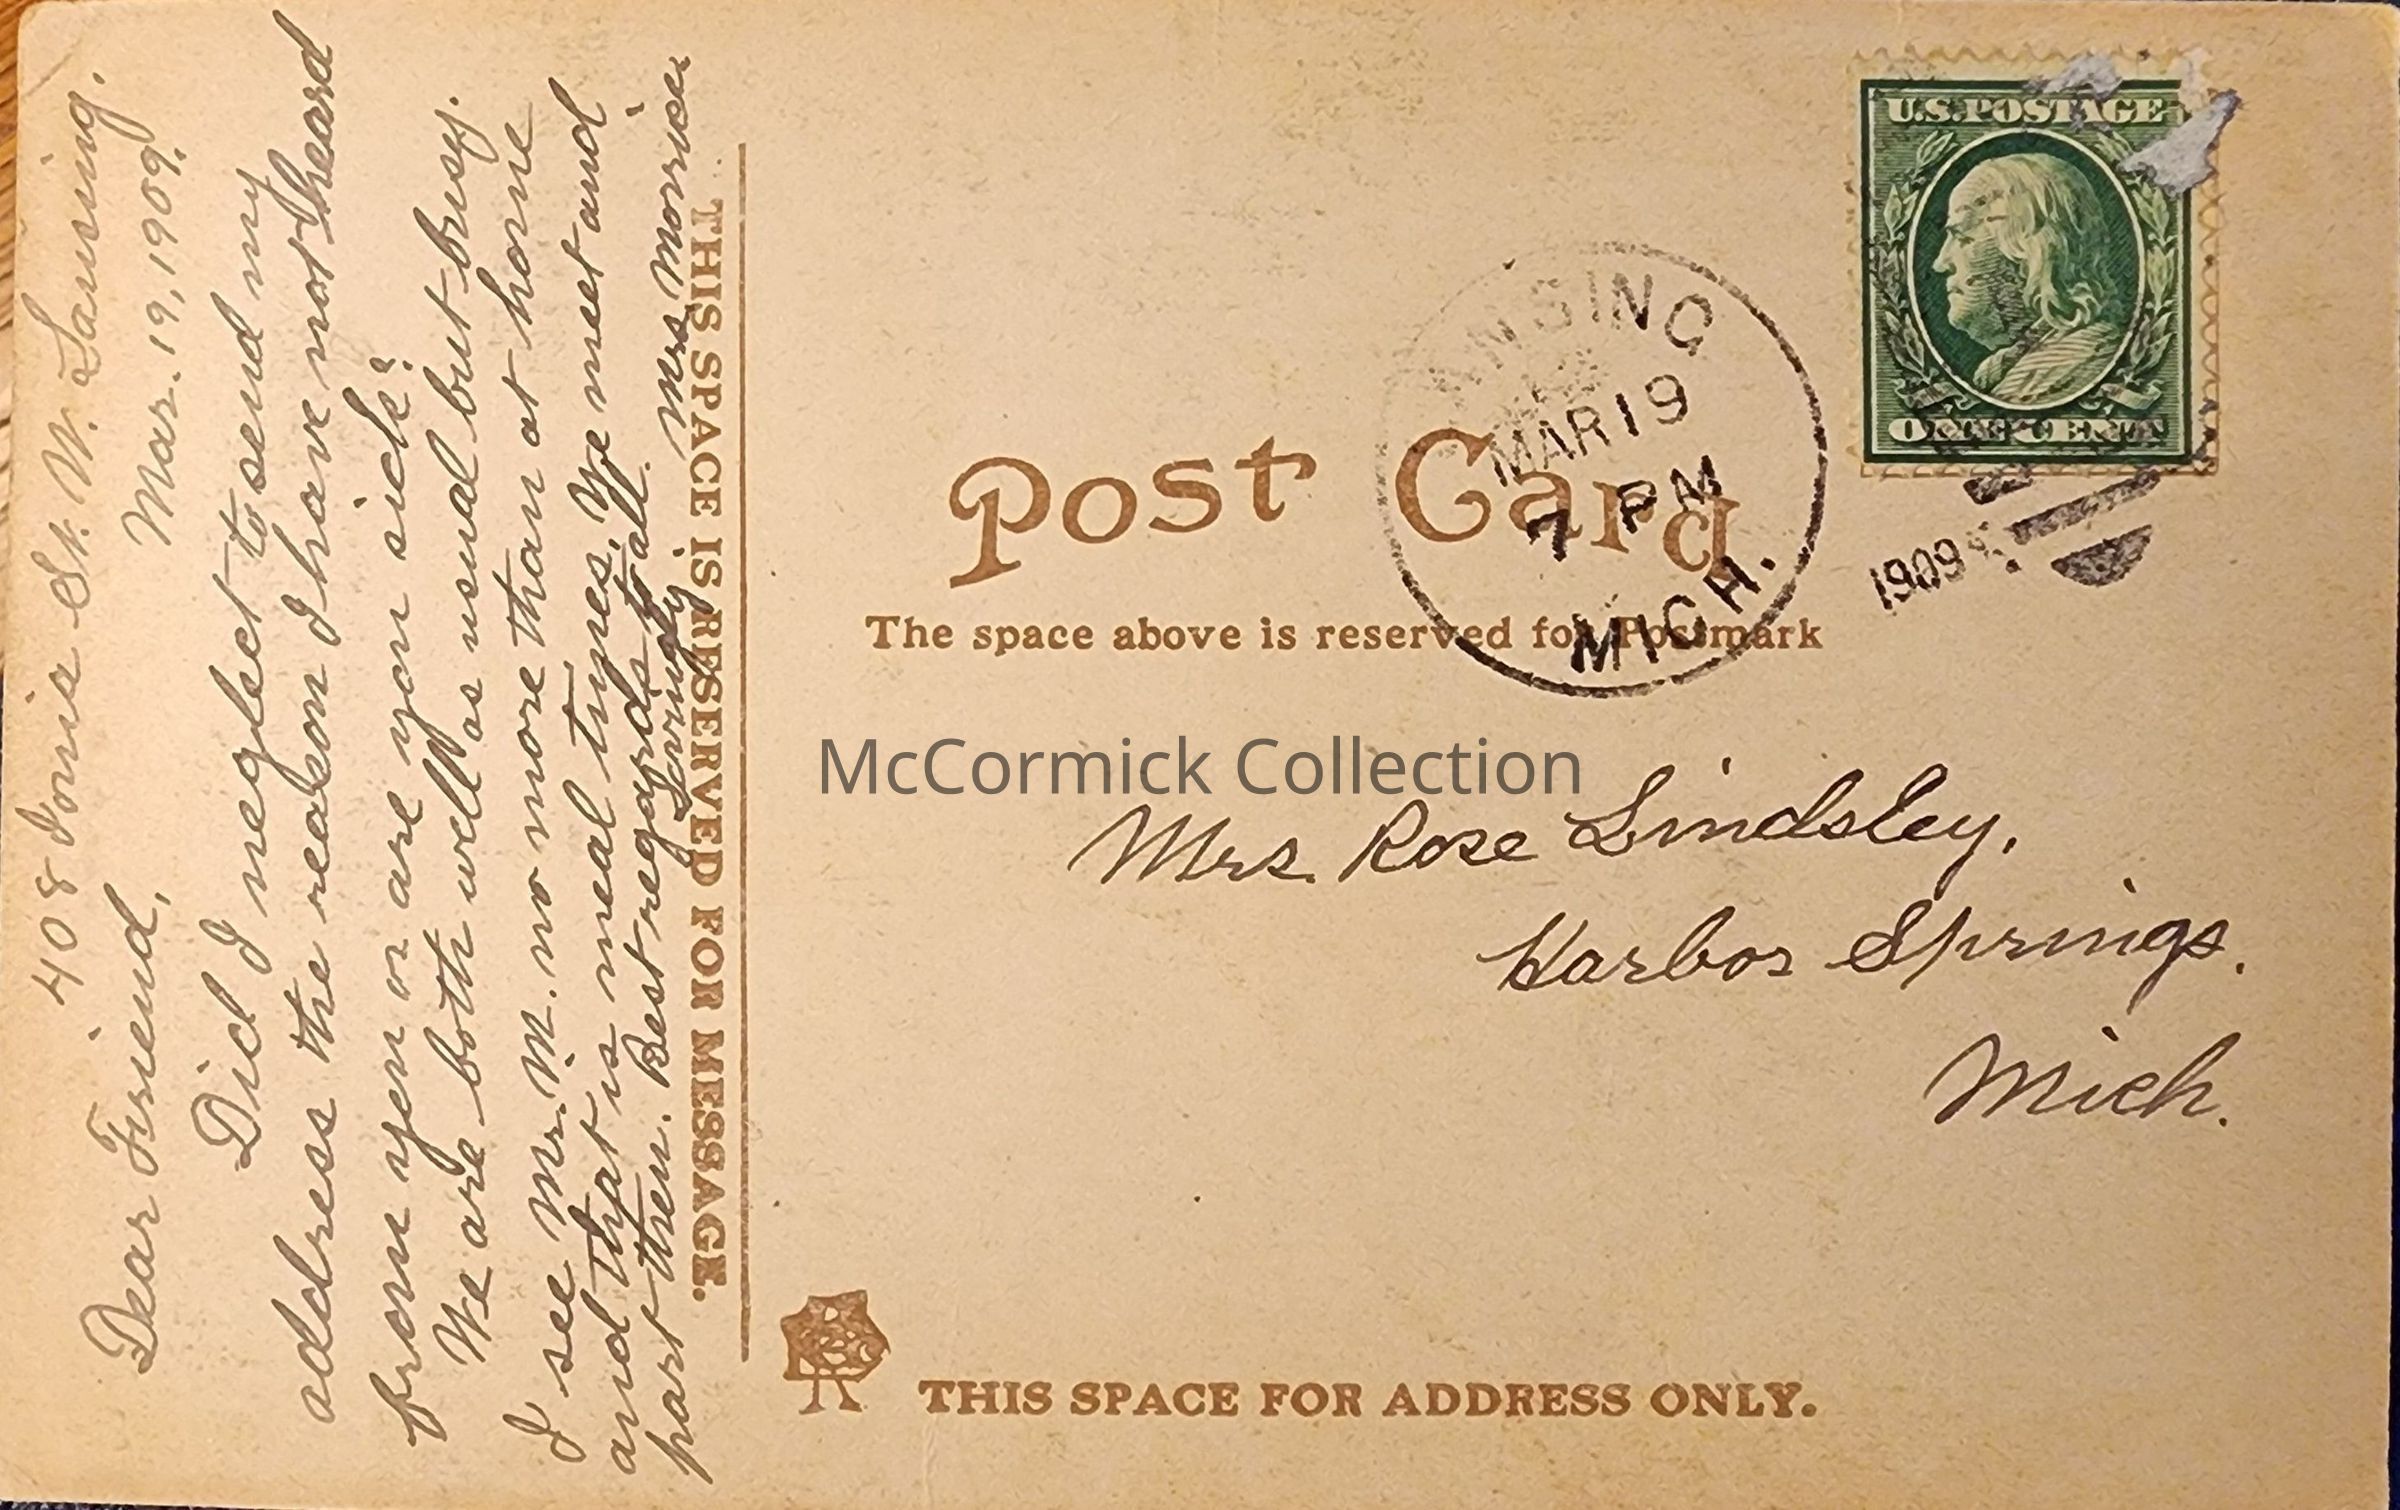 408 Ionia St. W. Lansing.
Mar. 19, 1909.
Dear Friend,
Did I neglect to send my
address the reason I have not heard
from you or are you sick?
We are both well as usual but busy.
I see Mr. M. no more than at home
and that is meal times. We meet and
part then. Best regards to all.
Mrs Morrice
THIS SPACE IS RESERVED FOR MESSAGE.
U.S. POSTAGE
ONE CENT
LANSING
MAR 19
7 PM
MICH.
1909
Post Card
The space above is reserved for Postmark
McCormick Collection
Mrs. Rose Lindsley,
Harbor Springs.
Mich.
THIS SPACE FOR ADDRESS ONLY.